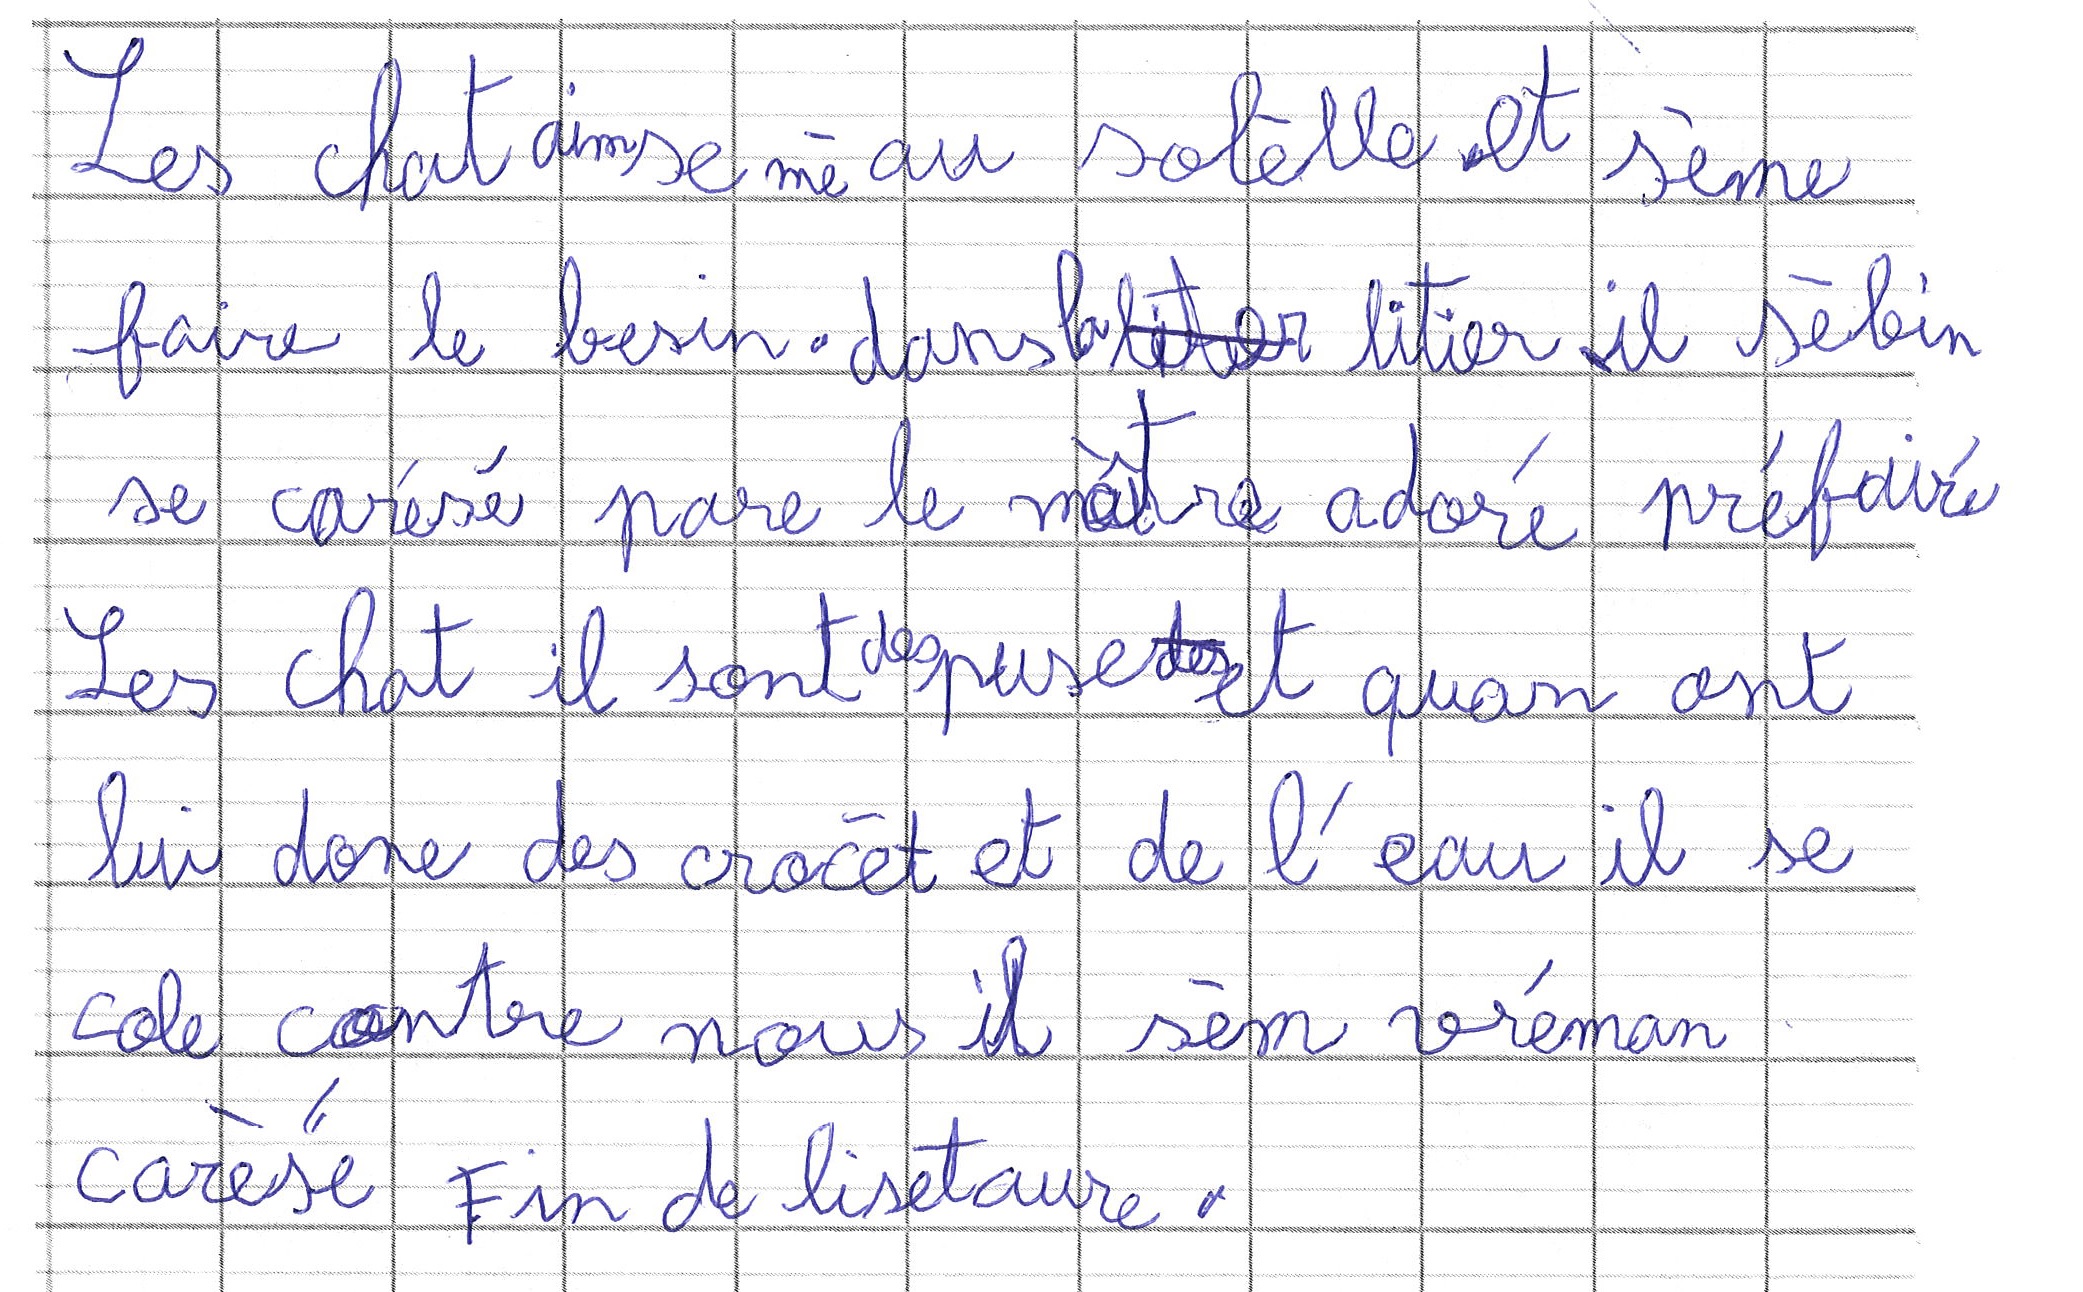 Les chat aim se mè au solèlle. et sème
faire le besin. dans la litier litier il sèbin
se carésé pare le maître adoré préfairé
Les chat il sont des puse des et quan ont
lui done des crocèt et de l'eau il se
cole contre nous il sèm vréman
carèsé Fin de lisetaure.